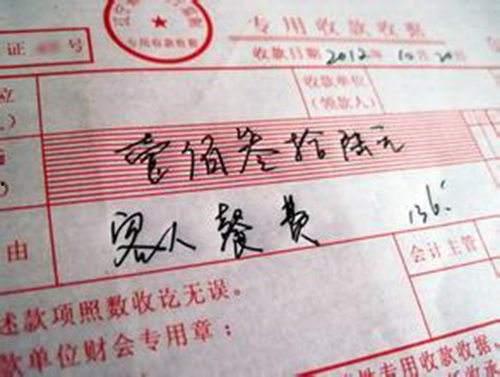 专用收款收据
专用收款收据
证 号
收款日期 2012年 10月 20日
收款单位
(领款人)
壹佰叁拾陆元
由 客人餐费 136.
会计主管
述款项照数收讫无误。
款单位财会专用章:
性专用收款收据、